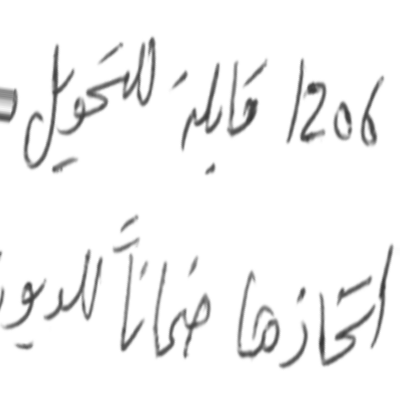 1206 قابلة للتحويل
اتخاذها ضماناً للديو